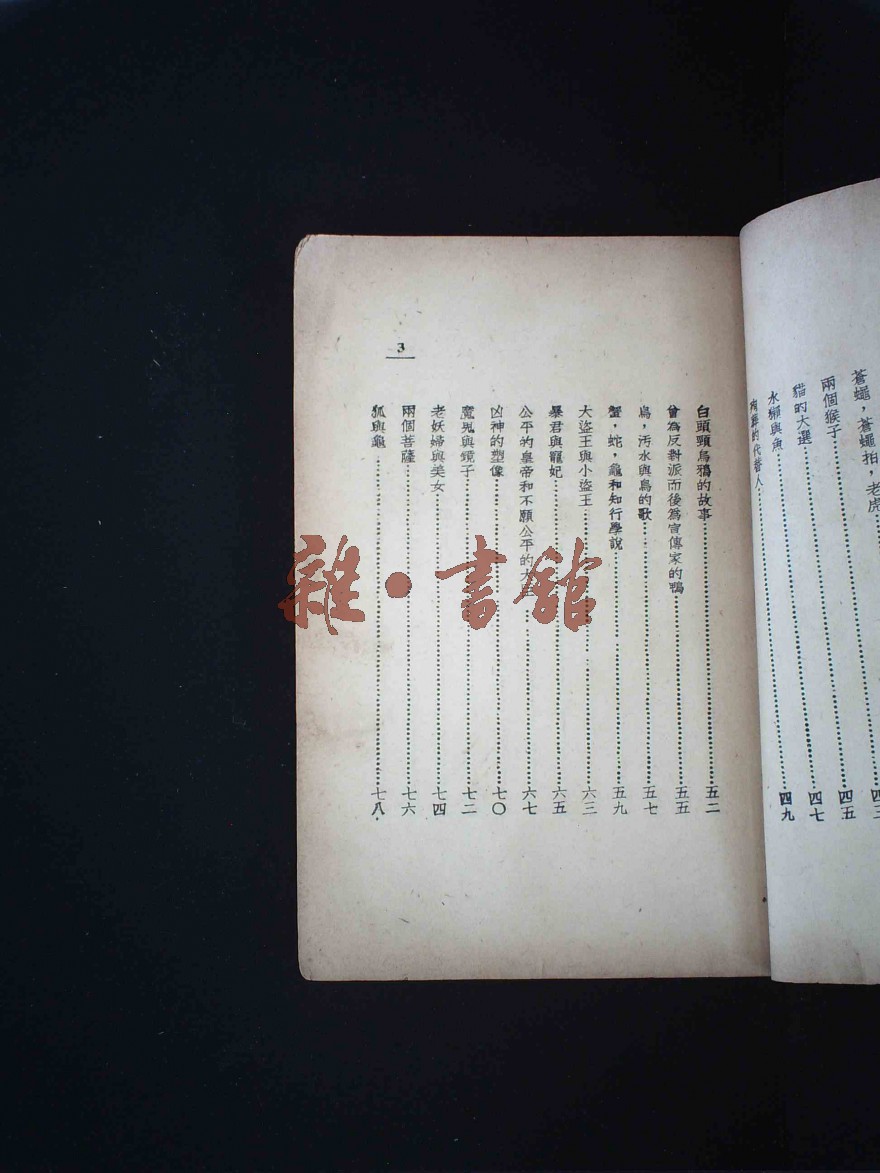 蒼蠅，蒼蠅拍，老虎……四三
兩個猴子……四五
貓的大選……四七
水獺與魚……四九
的代替人……
3
白頭頸烏鴉的故事……五二
曾為反對派而後為宣傳家的鴨……五五
鳥，汚水與鳥的歌……五七
蟹，蛇，龜和知行學說……五九
大盜王與小盜王……六三
暴君與寵妃……六五
公平的皇帝和不願公平的大……六七
凶神的塑像……七〇
魔鬼與鏡子……七二
老妖婦與美女……七四
兩個菩薩……七六
狐與龜……七八
雜·書館